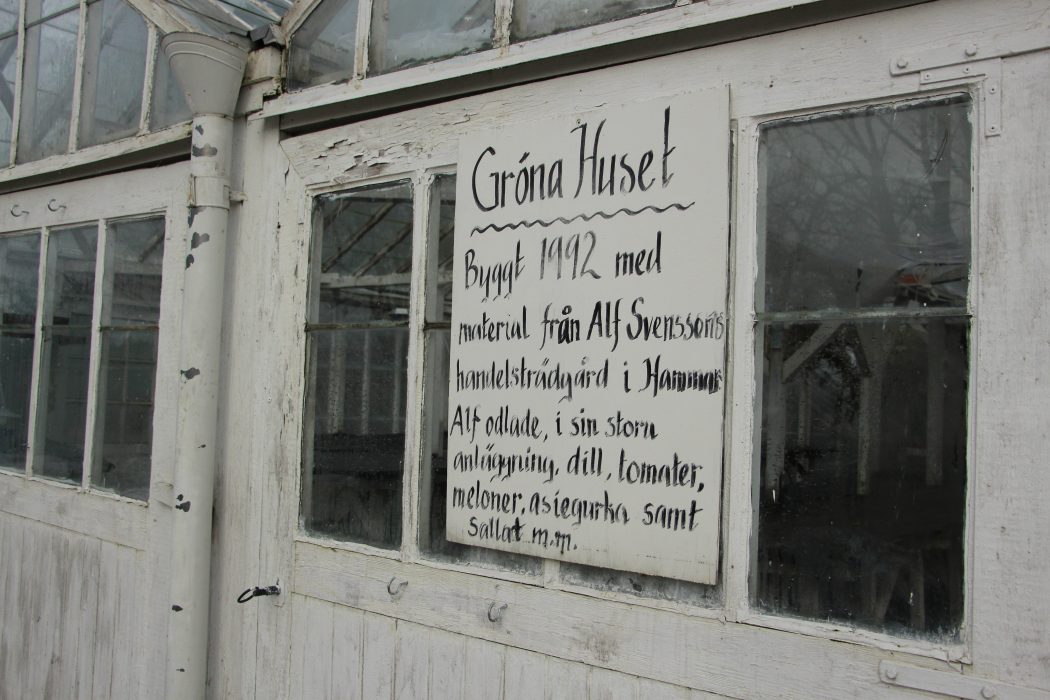 Gróna Huset
Byggt 1992 med
material från Alf Svenssons
handelsträdgård i Hammar
Alf odlade, i sin stora
anläggning, dill, tomater,
meloner, asiegurka samt
sallat m.m.